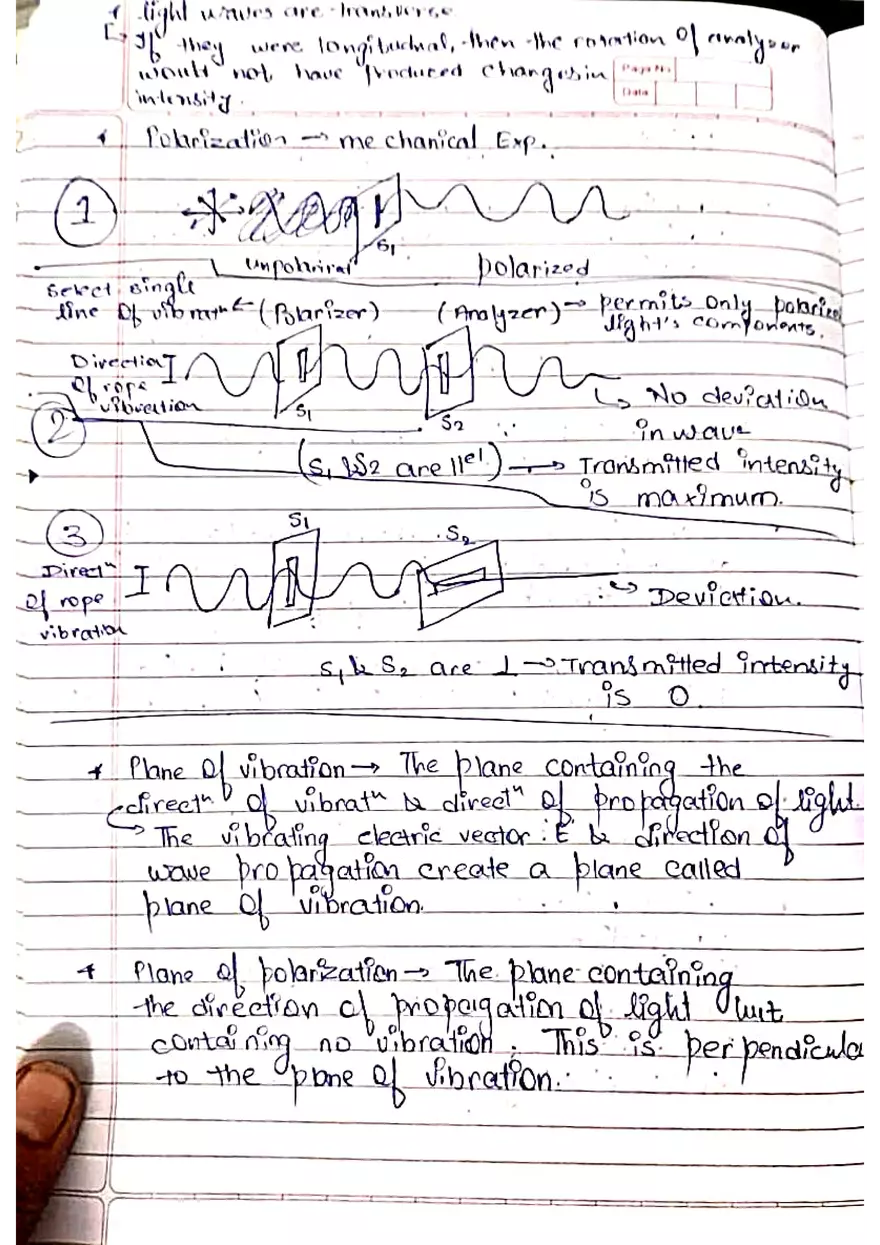 * light waves are transverse
↳ If they were longitudinal, then the rotation of analyser
would not have produced changes in
intensity.
Page No.
Date
* Polarization → mechanical Exp.
1
S1
unpolarized
polarized
Select single
line of vibratn ← (Polarizer)
(Analyzer) → permits only polarized
light's components.
Direction
of rope
vibration
S1
S2
↳ No deviation
in wave
2
(S1 & S2 are llel) → Transmitted intensity
is maximum.
3
S1
S2
Directn
of rope
vibration
↪ Deviation.
S1 & S2 are ⊥ → Transmitted intensity
is 0
* Plane of vibration → The plane containing the
directn of vibratn & directn of propagation of light.
→ The vibrating electric vector E & direction of
wave propagation create a plane called
plane of vibration.
* Plane of polarization → The plane containing
the direction of propagation of light but
containing no vibration. This is perpendicula
to the plane of vibration.